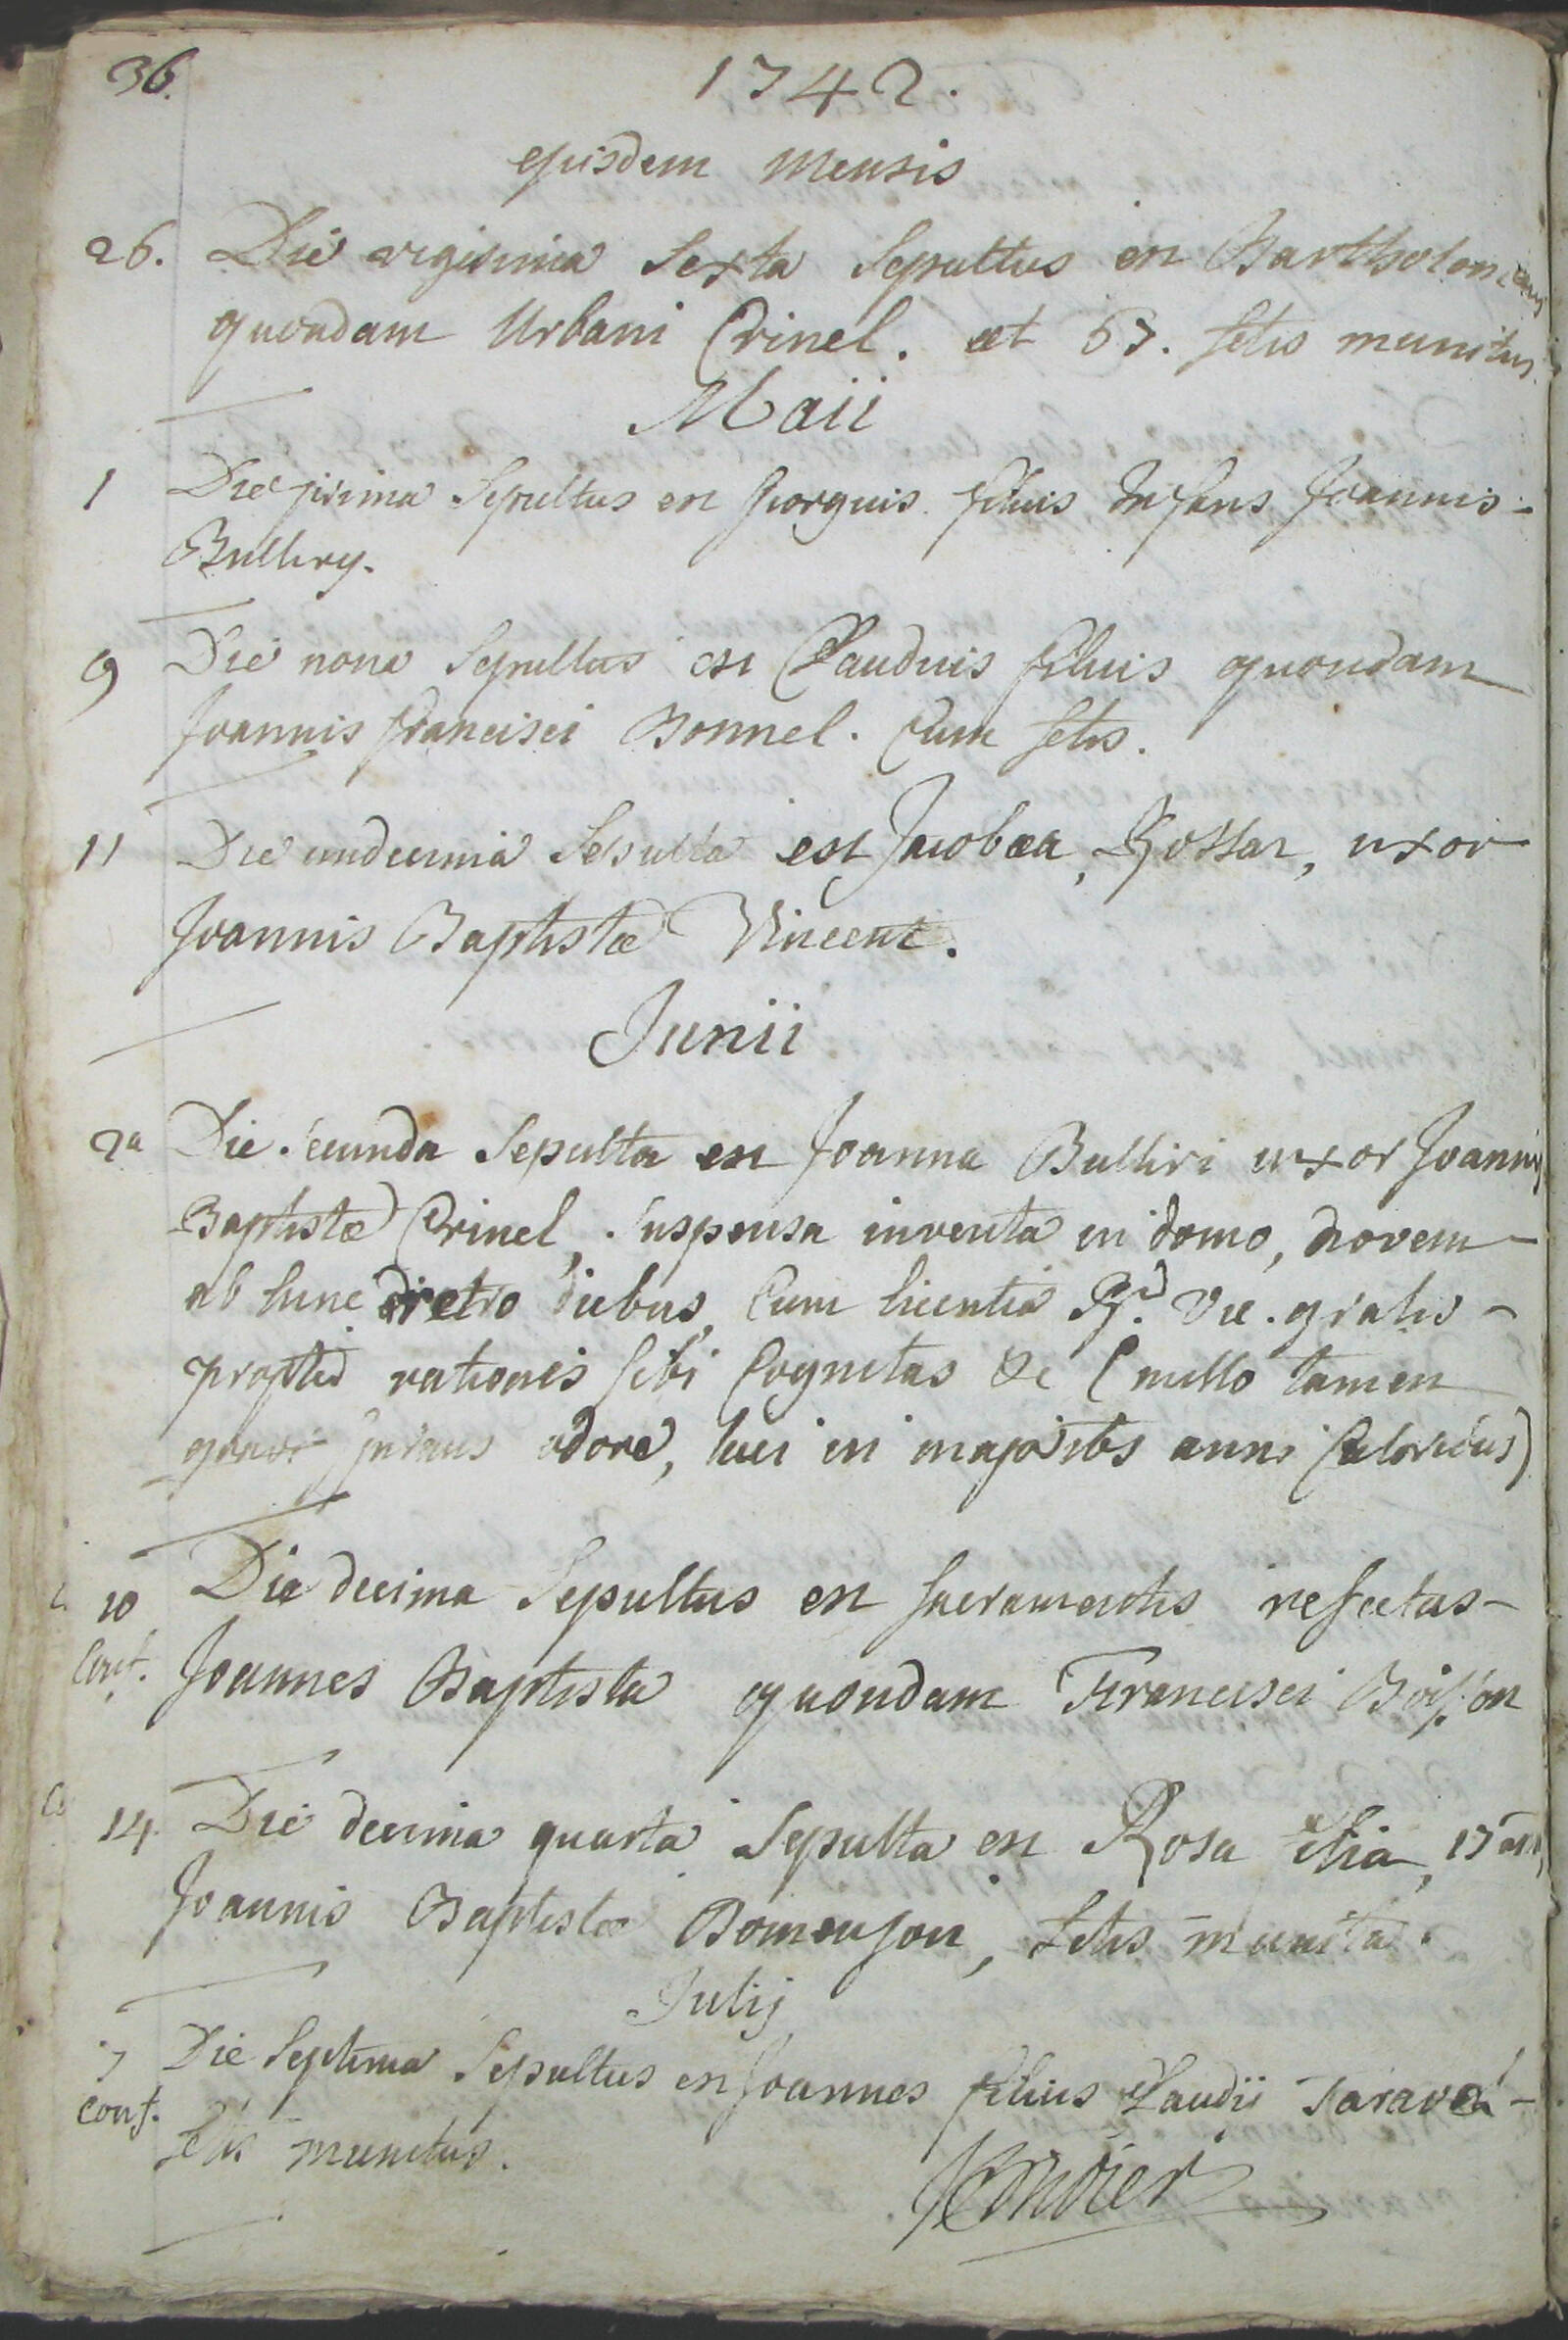 36.
1742.
ejusdem Mensis
26. Die vigesima Sexta Sepultus est Bartholomeus
quondam Urbani Crinel. æt 67. sctis munitus.
Maii
1 Die prima Sepultus est Georgius filius Infans Joannis
Bulliry.
9 Die nona Sepultus est Claudius filius quondam
Joannis Francisci Bonnel. Cum sctis.
11 Die undecima Sepulta est Jacobæa, Gottar, uxor
Joannis Baptistæ Vincent.
Junii
2a Die Secunda Sepulta est Joanna Bulliri uxor Joannis
Baptistæ Crinel, Suspensa inventa in domo, novem
ab hinc retro diebus, Cum licentia Rd. Vic. gralis
propter rationes sibi Cognitas &c (nullo tamen
gravi odore, licet in majoribs anni Caloribus)
10 Die decima Sepultus est sacramentis refectus
Conf. Joannes Baptista quondam Francisci Boisson
14 Die decima quarta Sepulta est Rosa filia, 17 an,
Joannis Baptistæ Bomenson, sctis munita.
Julij
7 Die Septima Sepultus est Joannes filius Claudii Taravel
conf. sctis munitus.